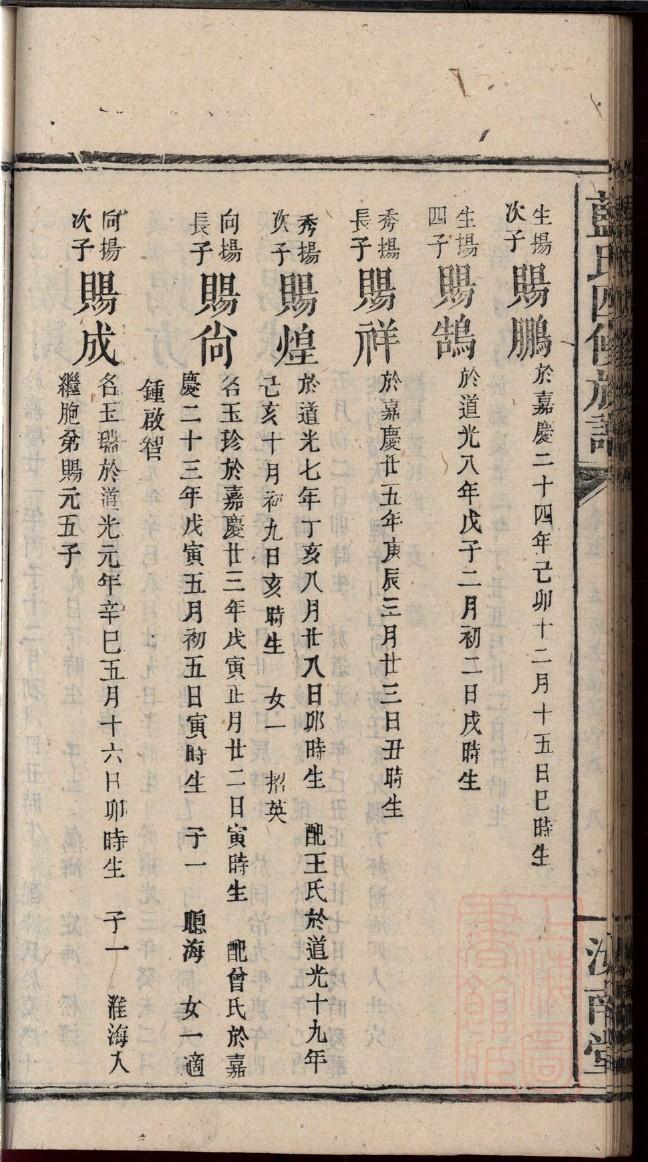 藍氏四修族譜
汝南堂
生揚
次子
賜鵬
於嘉慶二十四年己卯十二月十五日巳時生
生揚
四子
賜鵠
於道光八年戊子二月初二日戌時生
秀揚
長子
賜祥
於嘉慶廿五年庚辰三月廿三日丑時生
秀揚
次子
賜煌
於道光七年丁亥八月廿八日卯時生 配王氏於道光十九年
己亥十月初九日亥時生 女一 招英
向揚
長子
賜尚
名玉珍於嘉慶廿三年戊寅正月廿二日寅時生 配曾氏於嘉
慶二十三年戊寅五月初五日寅時生 子一 聽海 女一適
鍾啟智
向揚
次子
賜成
名玉瑞於道光元年辛巳五月十六日卯時生 子一 淮海入
繼胞弟賜元五子